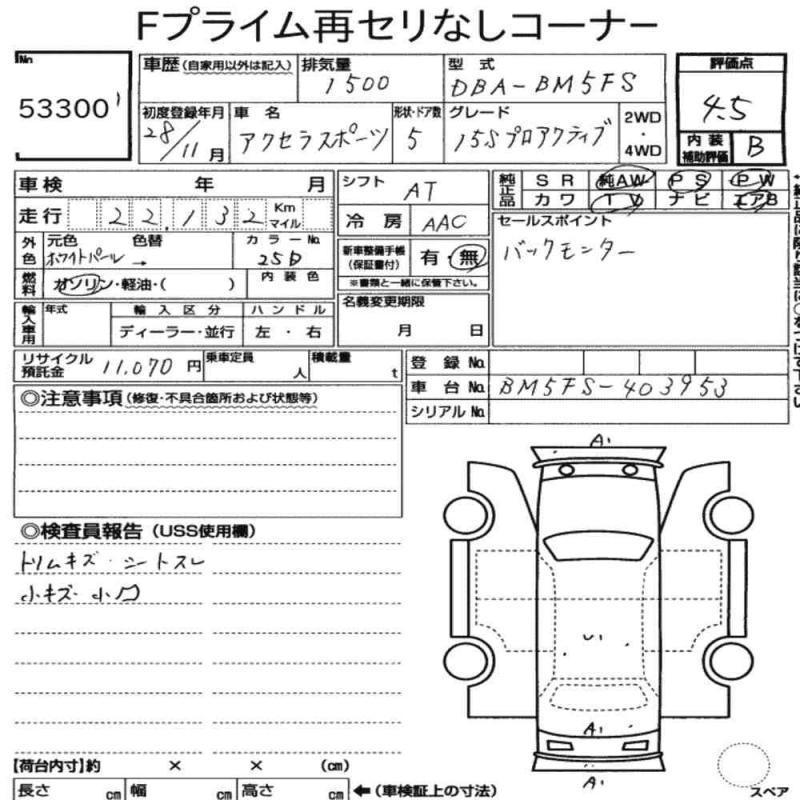 Fプライム再セリなしコーナー
No
53300
車歴 (自家用以外は記入)
排気量
1500
型式
DBA-BM5FS
評価点
4.5
初度登録年月
28/11月
車名
アクセラスポーツ
形状・ドア数
5
グレード
15Sプロアクティブ
2WD
・
4WD
内装
補助評価
B
車検 年 月
走行 22,132 Km
マイル
シフト
AT
冷房
AAC
純正品
SR 純AW PS PW
カワ TV ナビ エアB
外色
元色 色替
ホワイトパール →
カラーNo.
25D
燃料
ガソリン・軽油・( )
内装色
新車整備手帳
(保証書付)
有・無
※書類と一緒に保管下さい。
セールスポイント
バックモニター
輸入車用
年式
輸入区分
ディーラー・並行
ハンドル
左・右
名義変更期限
月 日
リサイクル
預託金
11,070円
乗車定員
人
積載量
t
登録No.
車台No.
BM5FS-403953
シリアルNo.
◎注意事項(修復・不具合箇所および状態等)
◎検査員報告(USS使用欄)
トリムキズ・シートスレ
小キズ 小凹
A1
U1
A1
A1
【荷台内寸】約 × × (cm)
長さ cm 幅 cm 高さ cm ←(車検証上の寸法)
スペア